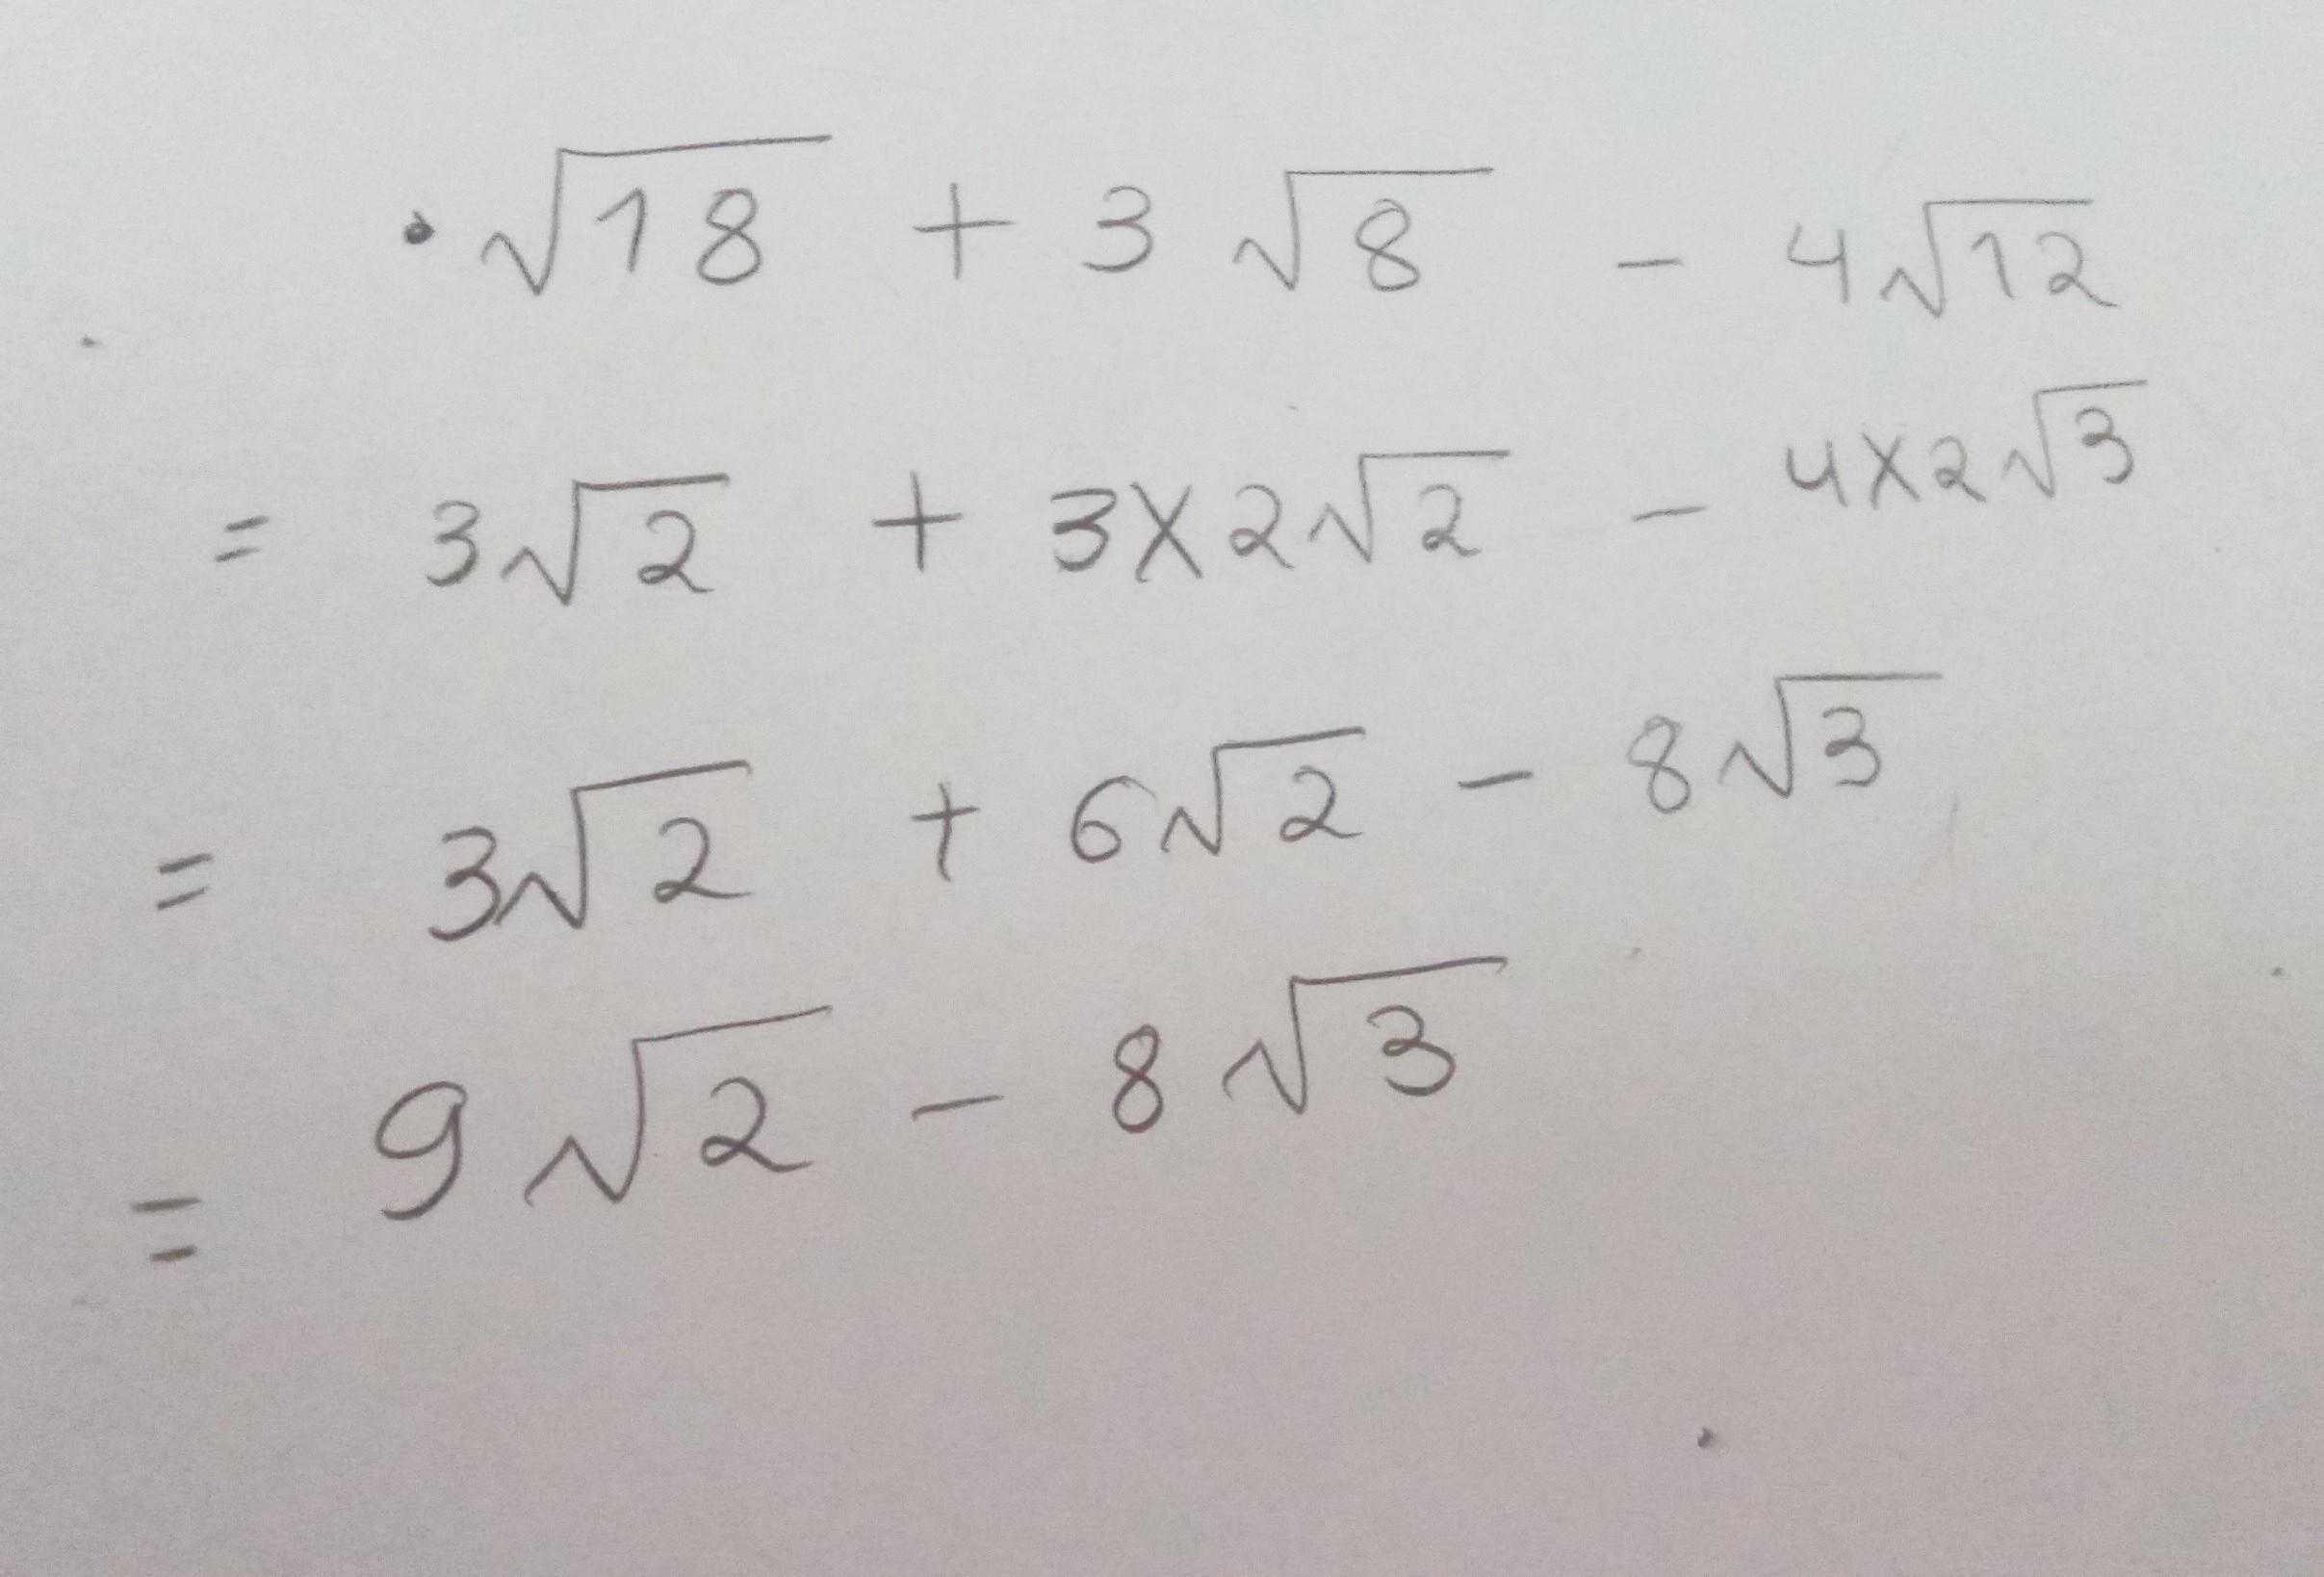 • √18 + 3√8 - 4√12
= 3√2 + 3×2√2 - 4×2√3
= 3√2 + 6√2 - 8√3
= 9√2 - 8√3